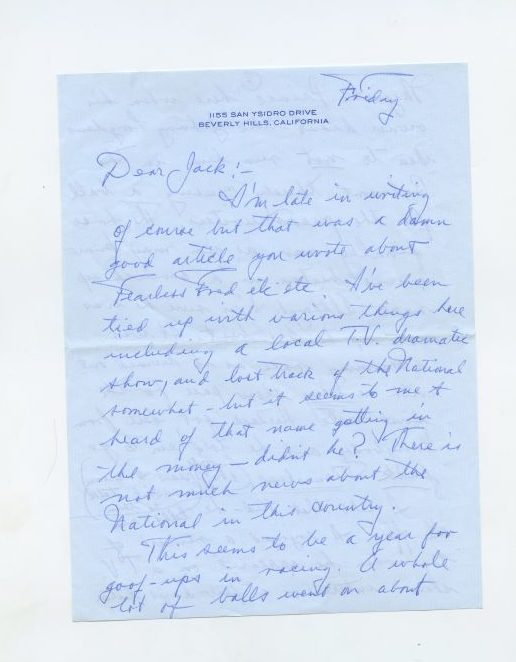 Friday
1155 SAN YSIDRO DRIVE
BEVERLY HILLS, CALIFORNIA
Dear Jack:-
I'm late in writing
of course but that was a damn
good article you wrote about
Fearless Fred etc etc. I've been
tied up with various things here
including a local T.V. dramatic
show, and lost track of the National
somewhat - but it seems to me I
heard of that name getting in
the money - didn't he? There is
not much news about the
National in this country.
This seems to be a year for
goof-ups in racing. A whole
lot of balls went on about